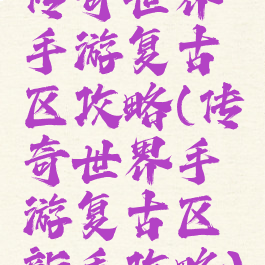 传奇世界
手游复古
区攻略(传
奇世界手
游复古区
新手攻略)